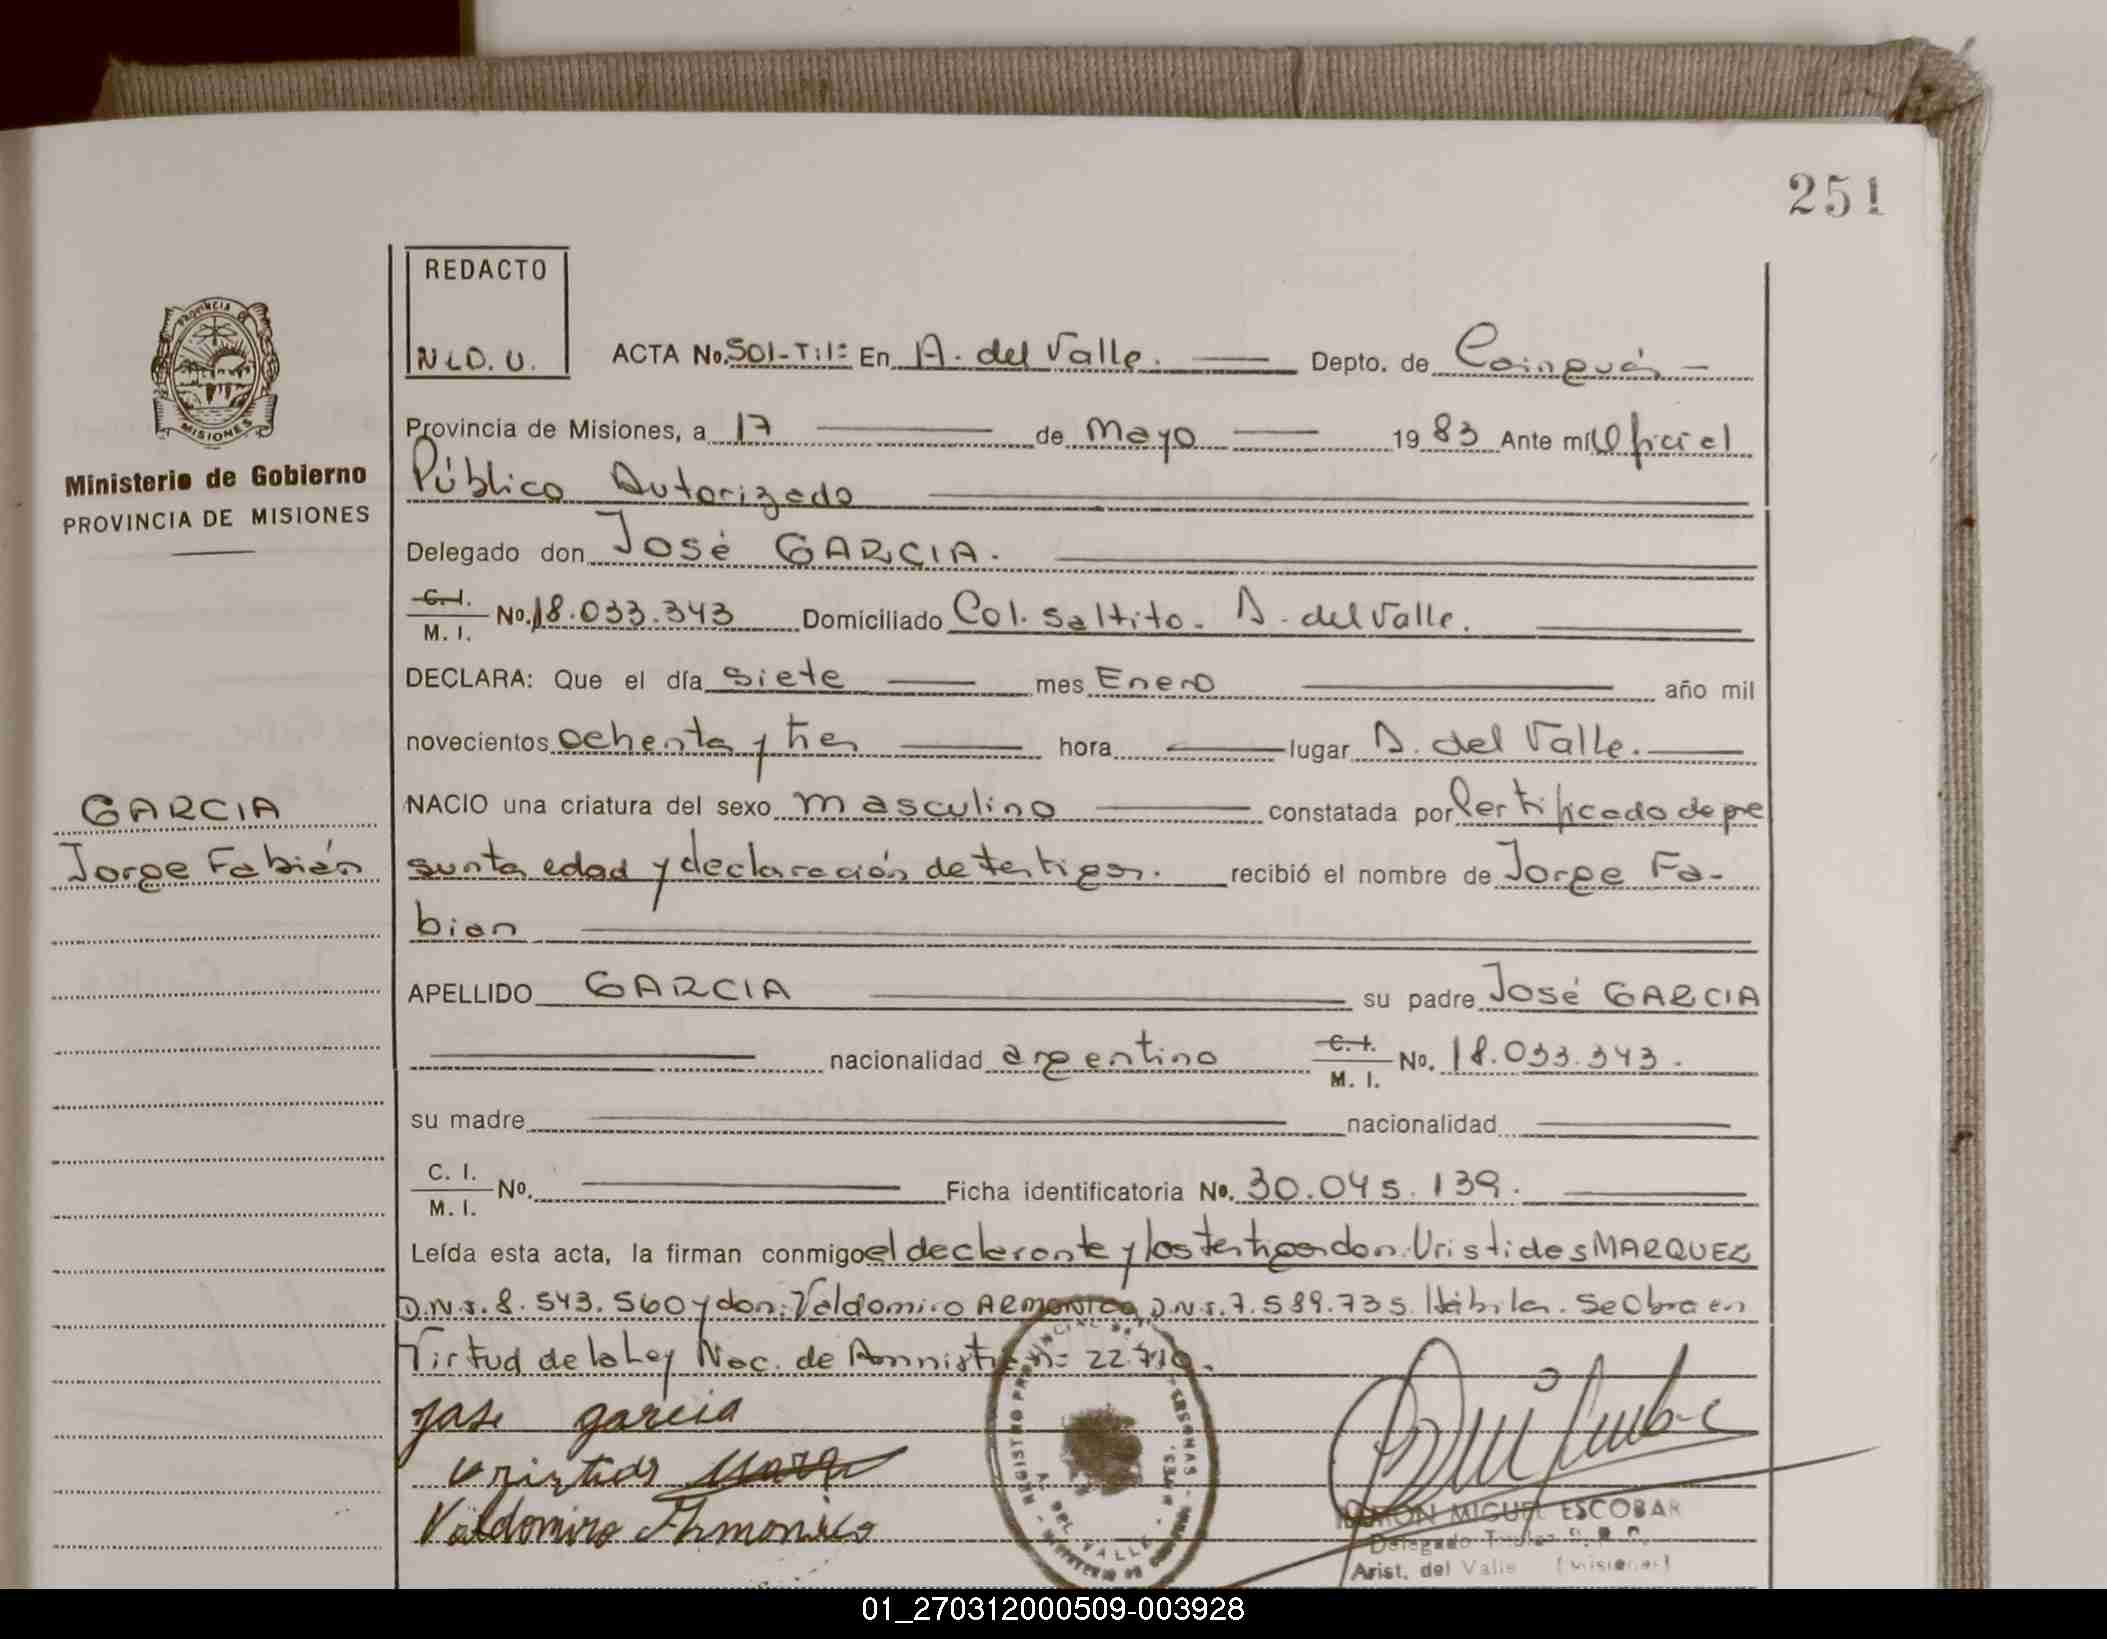 251
REDACTO
N.L.D.U.
ACTA No. 501-T:1= En A. del Valle. Depto. de Cainguás
Provincia de Misiones, a 17 de Mayo 1983 Ante mí Oficial
Público Autorizado
Delegado don José GARCIA.
C. I.
M. I. No. 18.033.343 Domiciliado Col. Saltito. A. del Valle.
DECLARA: Que el día siete mes Enero año mil
novecientos ochenta y tres hora lugar A. del Valle.
NACIO una criatura del sexo masculino constatada por Certificado de pre
sunta edad y declaración de testigos. recibió el nombre de Jorge Fa-
bian
APELLIDO GARCIA su padre José GARCIA
nacionalidad argentino C. I.
M. I. No. 18.033.343.
su madre nacionalidad
C. I.
M. I. No. Ficha identificatoria No. 30.045.139.
Leída esta acta, la firman conmigo el declarante y los testigos don: Uristides MARQUEZ
D.N.I. 8.543.560 y don: Valdomiro ARMONICO D.N.I. 7.589.735. Hábiles. Se Obra en
Virtud de la Ley Nac. de Amnistía n= 22.710.
jose garcia
Uristides
Valdomiro Armonico
REGISTRO PROVINCIAL DE PERSONAS
A. DEL VALLE
RAMON MIGUEL ESCOBAR
Delegado Titular R. P. P.
Arist. del Valle (Misiones)
PROVINCIA DE
MISIONES
Ministerio de Gobierno
PROVINCIA DE MISIONES
GARCIA
Jorge Fabián
01_270312000509-003928